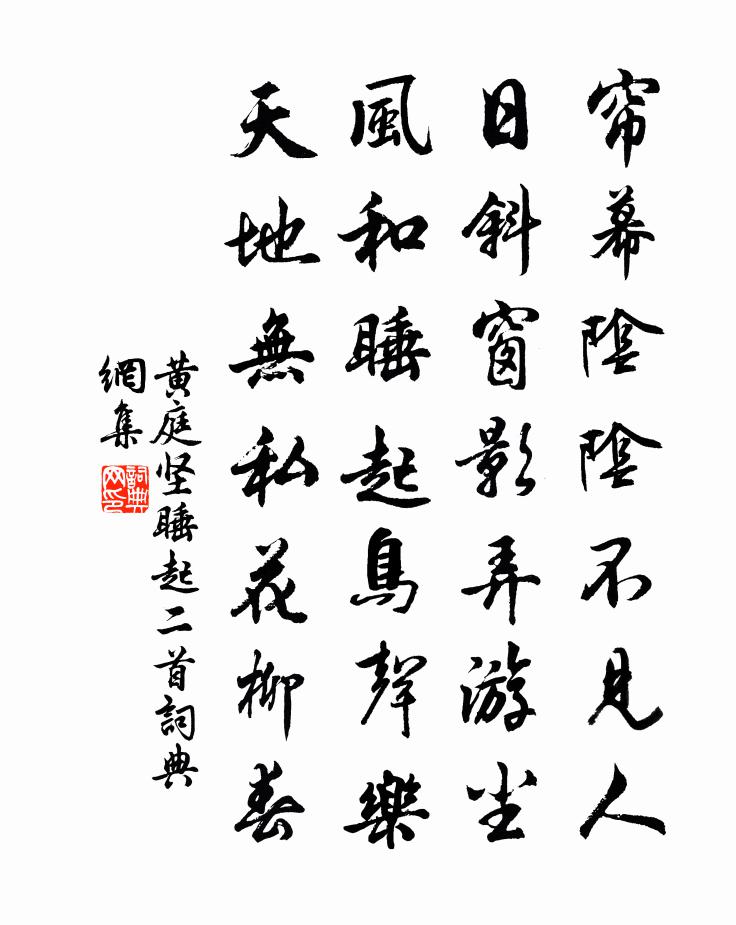 帘幕陰陰不見人
日斜窗影弄游尘
風和睡起鳥聲樂
天地無私花柳春
黄庭坚睡起二首詞典
網集
詞典网印